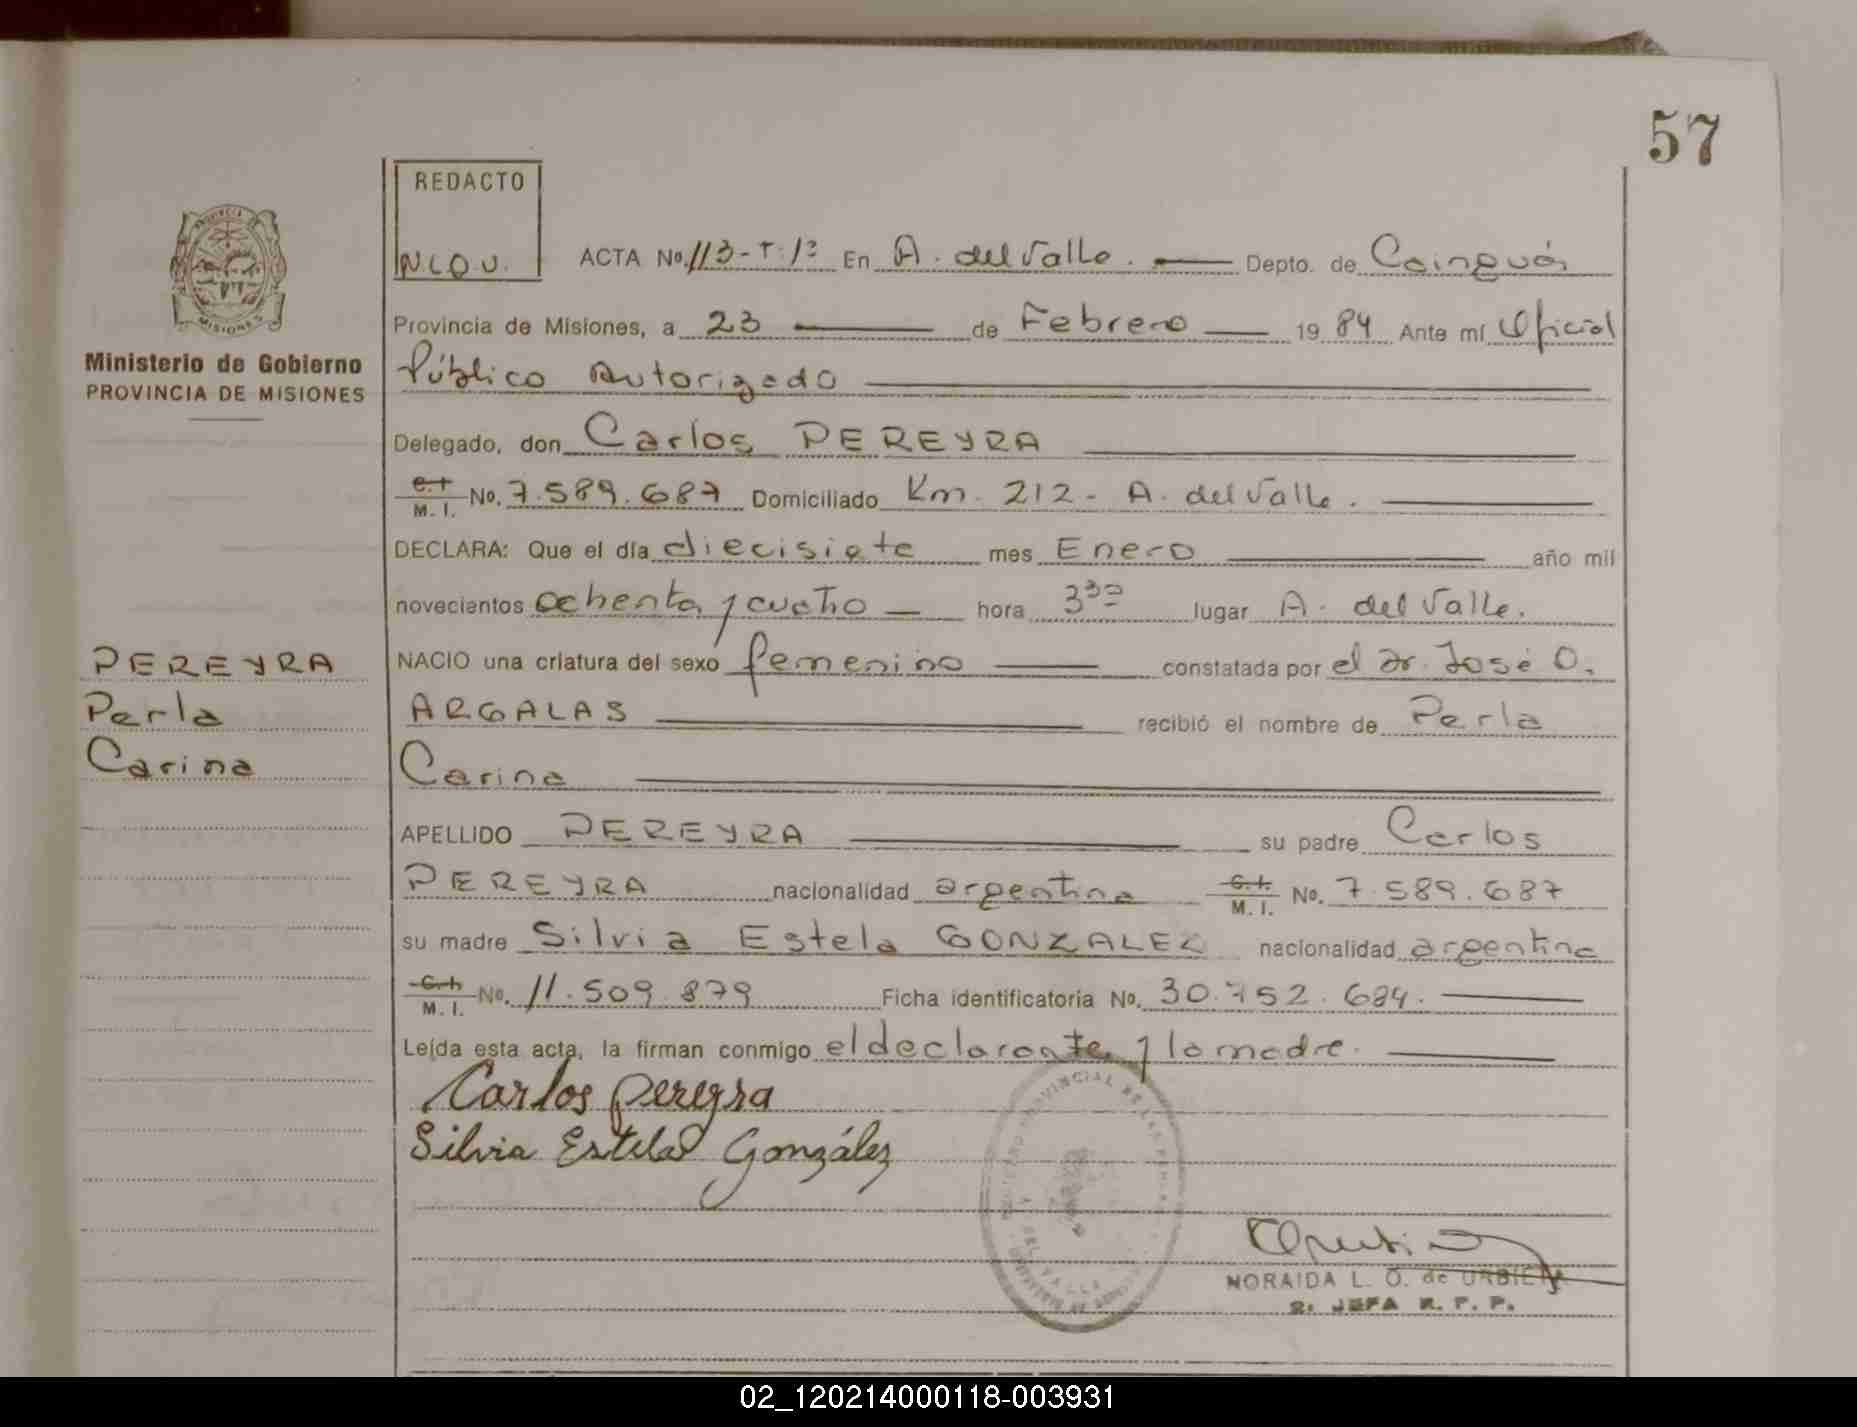 57
REDACTO
N L O U.
PROVINCIA DE
MISIONES
Ministerio de Gobierno
PROVINCIA DE MISIONES
ACTA No. 113-T:1º En A. del Valle. Depto. de Cainguás
Provincia de Misiones, a 23 de Febrero 1984 Ante mí Oficial
Público Autorizado
Delegado, don Carlos PEREYRA
C.I. M.I. No. 7.589.687 Domiciliado Km. 212 - A. del Valle.
DECLARA: Que el día diecisiete mes Enero año mil
novecientos ochenta y cuatro hora 3 30 lugar A. del Valle.
NACIO una criatura del sexo femenino constatada por el Dr. José O.
ARGALAS recibió el nombre de Perla
Carina
APELLIDO PEREYRA su padre Carlos
PEREYRA nacionalidad argentina C.I. M.I. No. 7.589.687
su madre Silvia Estela GONZALEZ nacionalidad argentina
C.I. M.I. No. 11.509.879 Ficha identificatoria No. 30.752.684.
Leída esta acta, la firman conmigo el declarante y la madre.
PEREYRA
Perla
Carina
Carlos Pereyra
Silvia Estela González
NORAIDA L. O. de URBIETA
2. JEFA R. P. P.
02_120214000118-003931